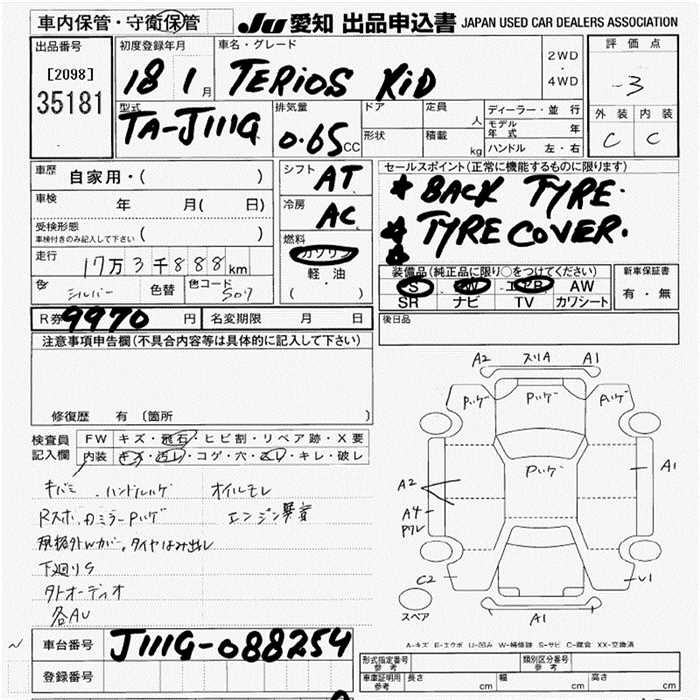 車内保管・守衛保管
JU 愛知 出品申込書 JAPAN USED CAR DEALERS ASSOCIATION
出品番号
[2098]
35181
初度登録年月
18 1月
車名・グレード
TERIOS KID
2WD
・
4WD
評価点
-3
外装 内装
C C
型式
TA-J111G
排気量
0.65CC
ドア
形状
定員
人
積載
kg
ディーラー・並行
モデル年式 年
ハンドル 左・右
車歴
自家用・( )
車検
年 月( 日)
受検形態
車検付きのみ記入して下さい ( )
走行
17万3千888km
色 シルバー 色替 色コード S07
シフト
AT
冷房
AC
燃料
ガソリン
軽・油
( )
セールスポイント(正常に機能するものに限ります)
* BACK TYRE.
* TYRE COVER.
*
装備品(純正品に限り○をつけてください)
S PW エアB AW
SR ナビ TV カワシート
新車保証書
有・無
R券 9970 円 名変期限 月 日
後日品
注意事項申告欄(不具合内容等は具体的に記入して下さい)
修復歴 有 (箇所 )
検査員
記入欄
FW キズ・飛石・ヒビ割・リペア跡・X要
内装 キズ・汚レ・コゲ・穴・スレ・キレ・破レ
キバミ . ハンドルハゲ オイルモレ
Rスポ、ドミラーPハゲ エンジン異音
規格外Wカバー、タイヤはみ出し
下廻りS
外オーディオ
各AU
A2 スリA A1
Pハゲ Pハゲ Pハゲ
Pハゲ
A2
A1
A4
C2 U1
A1
スペア
A-キズ E-エクボ U-凹み W-補修跡 S-サビ C-腐食 XX-交換済
車台番号 J111G-088254
登録番号
形式指定番号
参考
類別区分番号
参考
車庫証明用
参考
長さ cm 幅 cm 高さ cm